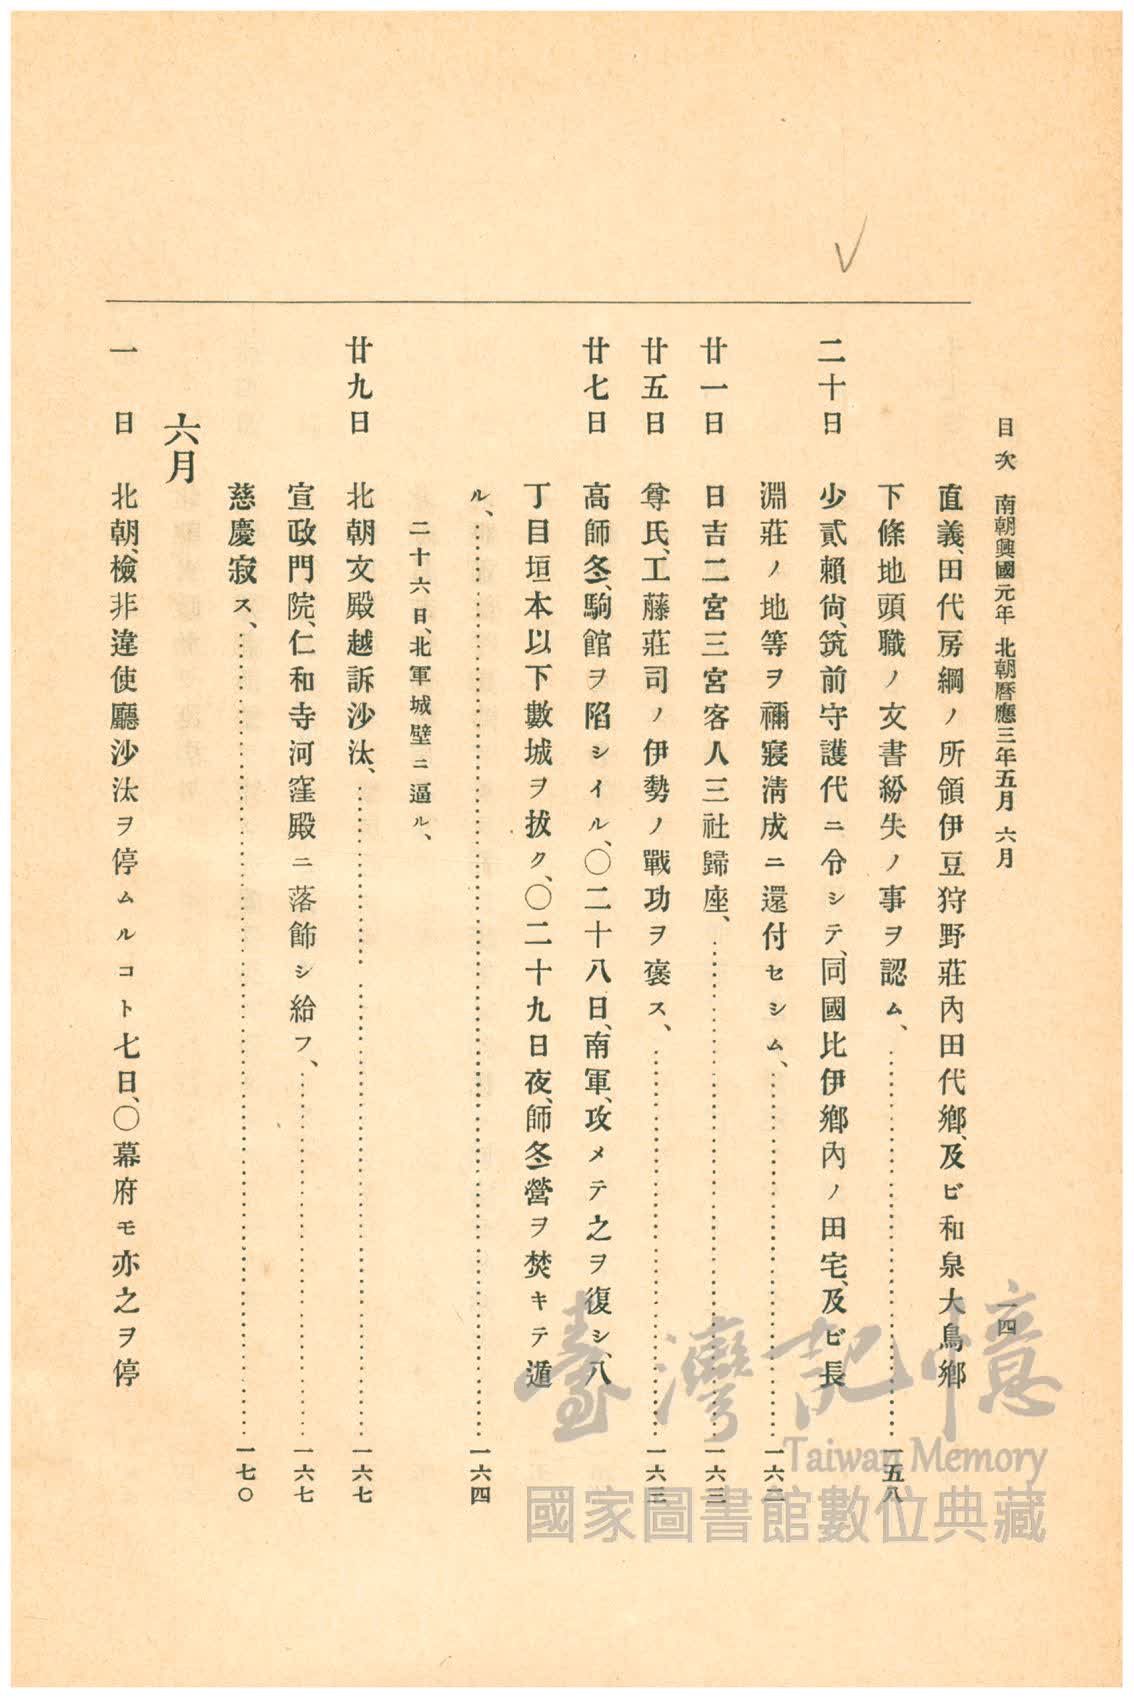 目次　南朝興國元年　北朝曆應三年五月　六月　一四
直義、田代房綱ノ所領伊豆狩野莊內田代鄕、及ビ和泉大鳥鄕
下條地頭職ノ文書紛失ノ事ヲ認ム、……一五八
二十日　少貳賴尙、筑前守護代ニ令シテ、同國比伊鄕內ノ田宅、及ビ長
淵莊ノ地等ヲ禰寢淸成ニ還付セシム、……一六二
廿一日　日吉二宮三宮客人三社歸座、……一六三
廿五日　尊氏、工藤莊司ノ伊勢ノ戰功ヲ褒ス、……一六三
廿七日　高師冬、駒館ヲ陷シイル、〇二十八日、南軍、攻メテ之ヲ復シ、八
丁目垣本以下數城ヲ拔ク、〇二十九日夜、師冬營ヲ焚キテ遁
ル、……一六四
二十六日、北軍城壁ニ逼ル、
廿九日　北朝文殿越訴沙汰、……一六七
宣政門院、仁和寺河窪殿ニ落飾シ給フ、……一六七
慈慶寂ス、……一七〇
六月
一日　北朝、檢非違使廳沙汰ヲ停ムルコト七日、〇幕府モ亦之ヲ停
臺灣記憶
Taiwan Memory
國家圖書館數位典藏